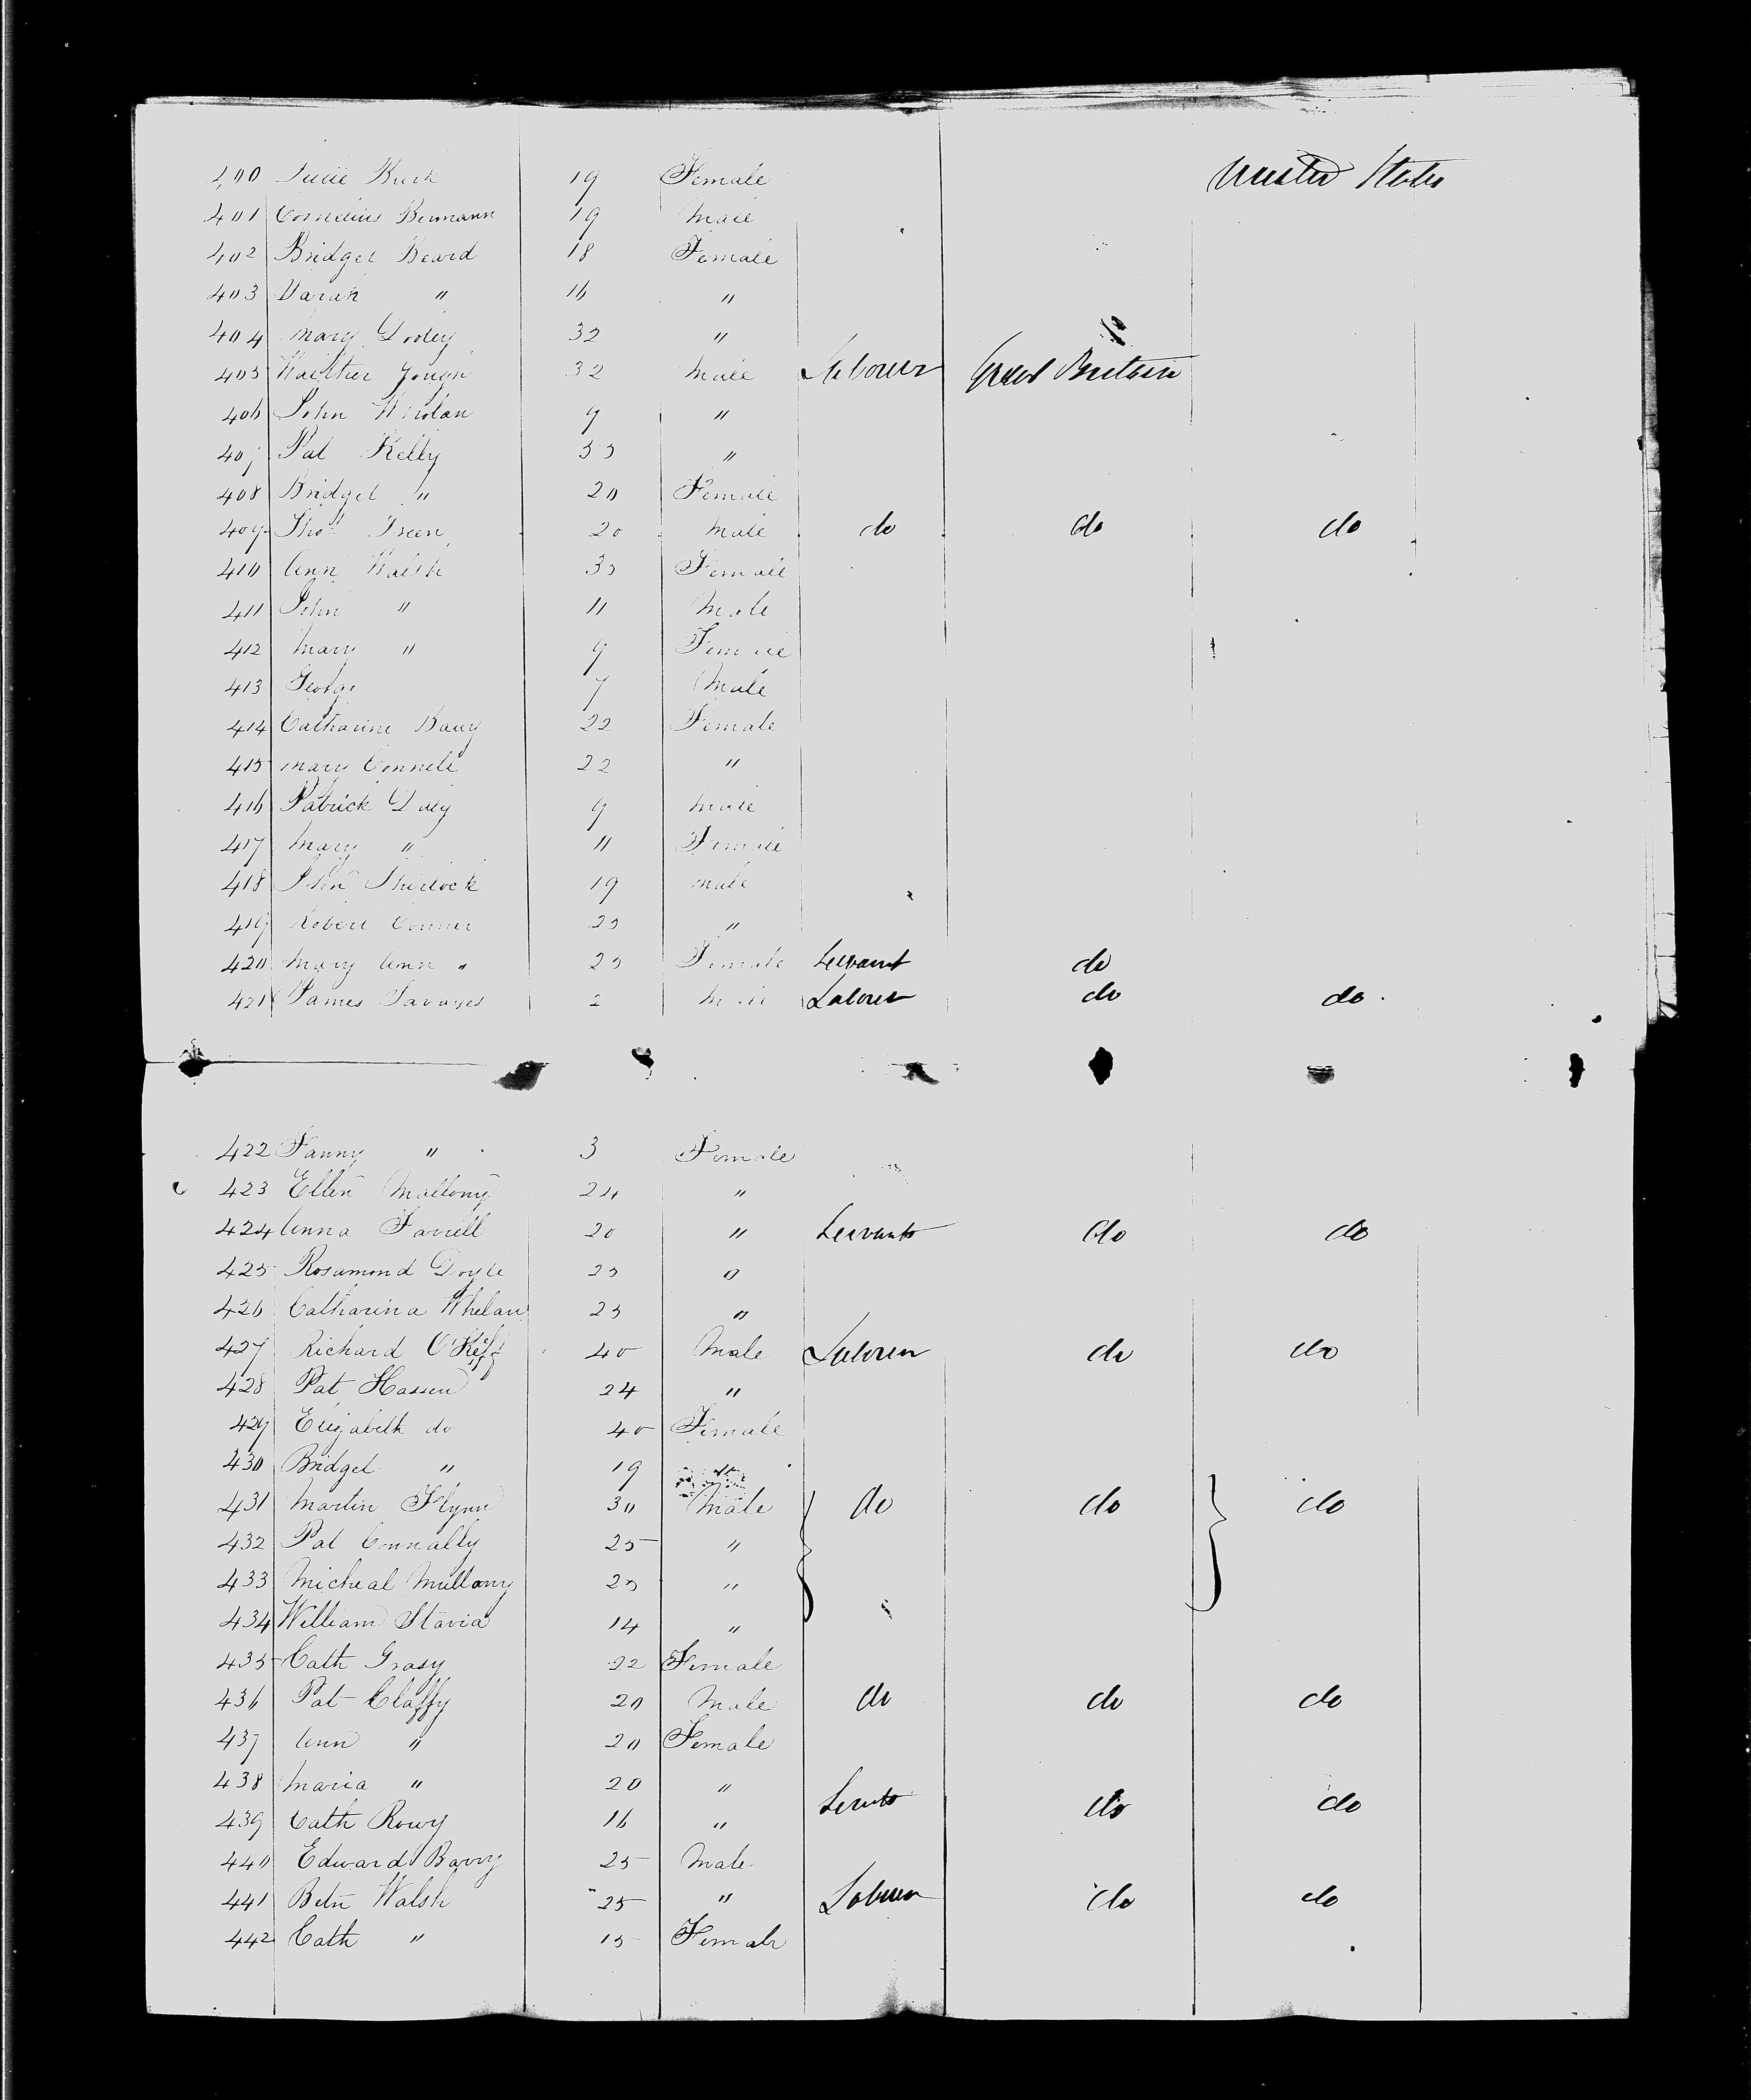 400 Lucie Burk 19 Female United States
401 Cornelius Bermann 19 Male
402 Bridget Beard 18 Female
403 Sarah " 16 "
404 Mary Dooley 32 "
405 32 Male Laborer Great Britain
406 John 9 "
407 Pat Kelly 35 "
408 Bridget " 20 Female
409 Thos Green 20 Male do do do
410 Ann Walsh 35 Female
411 John " 11 Male
412 Mary " 9 Female
413 George 7 Male
414 Catharine Bary 22 Female
415 Mary Connell 22 "
416 Patrick Daly 9 Male
417 Mary " 11 Female
418 John Sherlock 19 male
419 Robert Conner 25 "
420 Mary Ann " 25 Female Servant do
421 James Savages 2 Male Laborer do do
422 Fanny " 3 Female
423 Ellen Mallony 24 "
424 Anna Farrell 20 " Servants do do
425 Rosamond Doyle 25 "
426 Catharina Whelan 25 "
427 Richard O'Keff 40 Male Laborer do do
428 Pat Hassen 24 "
429 Elizabeth do 40 Female
430 Bridget " 19 "
431 Martin Flynn 30 Male do do do
432 Pat Connally 25 "
433 Micheal Mullany 25 "
434 William Stavia 14 "
435 Cath Grasy 22 Female
436 Pat Claffy 20 Male do do do
437 Ann " 20 Female
438 Maria " 20 "
Servts do do
439 Cath Rowy 16 "
440 Edward Barry 25 Male
441 Betn Walsh 25 " Laborer do do
442 Cath " 15 Female